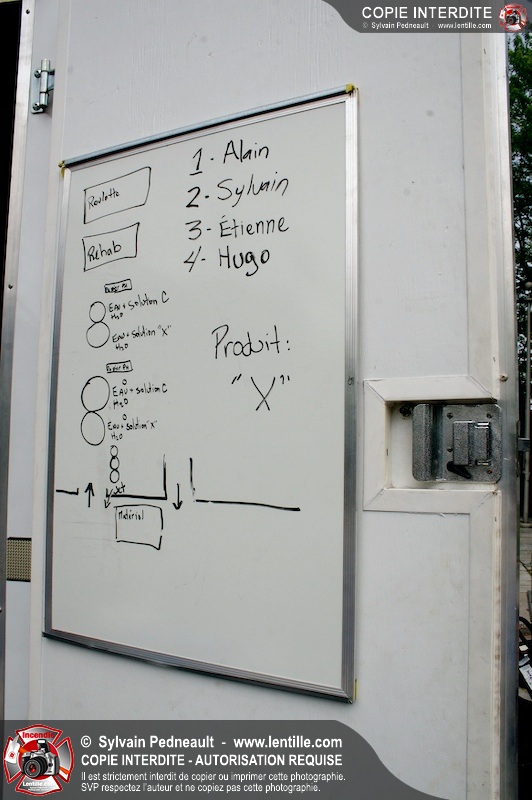 COPIE INTERDITE
© Sylvain Pedneault - www.lentille.com
1 - Alain
2 - Sylvain
3 - Étienne
4 - Hugo
Roulotte
Rehab
Eau + solution C
H2O
Eau + solution "X"
H2O
Produit:
"X"
Eau + solution C
H2O
Eau + solution "X"
H2O
Matériel
Incendie
Lentille.com
© Sylvain Pedneault - www.lentille.com
COPIE INTERDITE - AUTORISATION REQUISE
Il est strictement interdit de copier ou imprimer cette photographie.
SVP respectez l'auteur et ne copiez pas cette photographie.